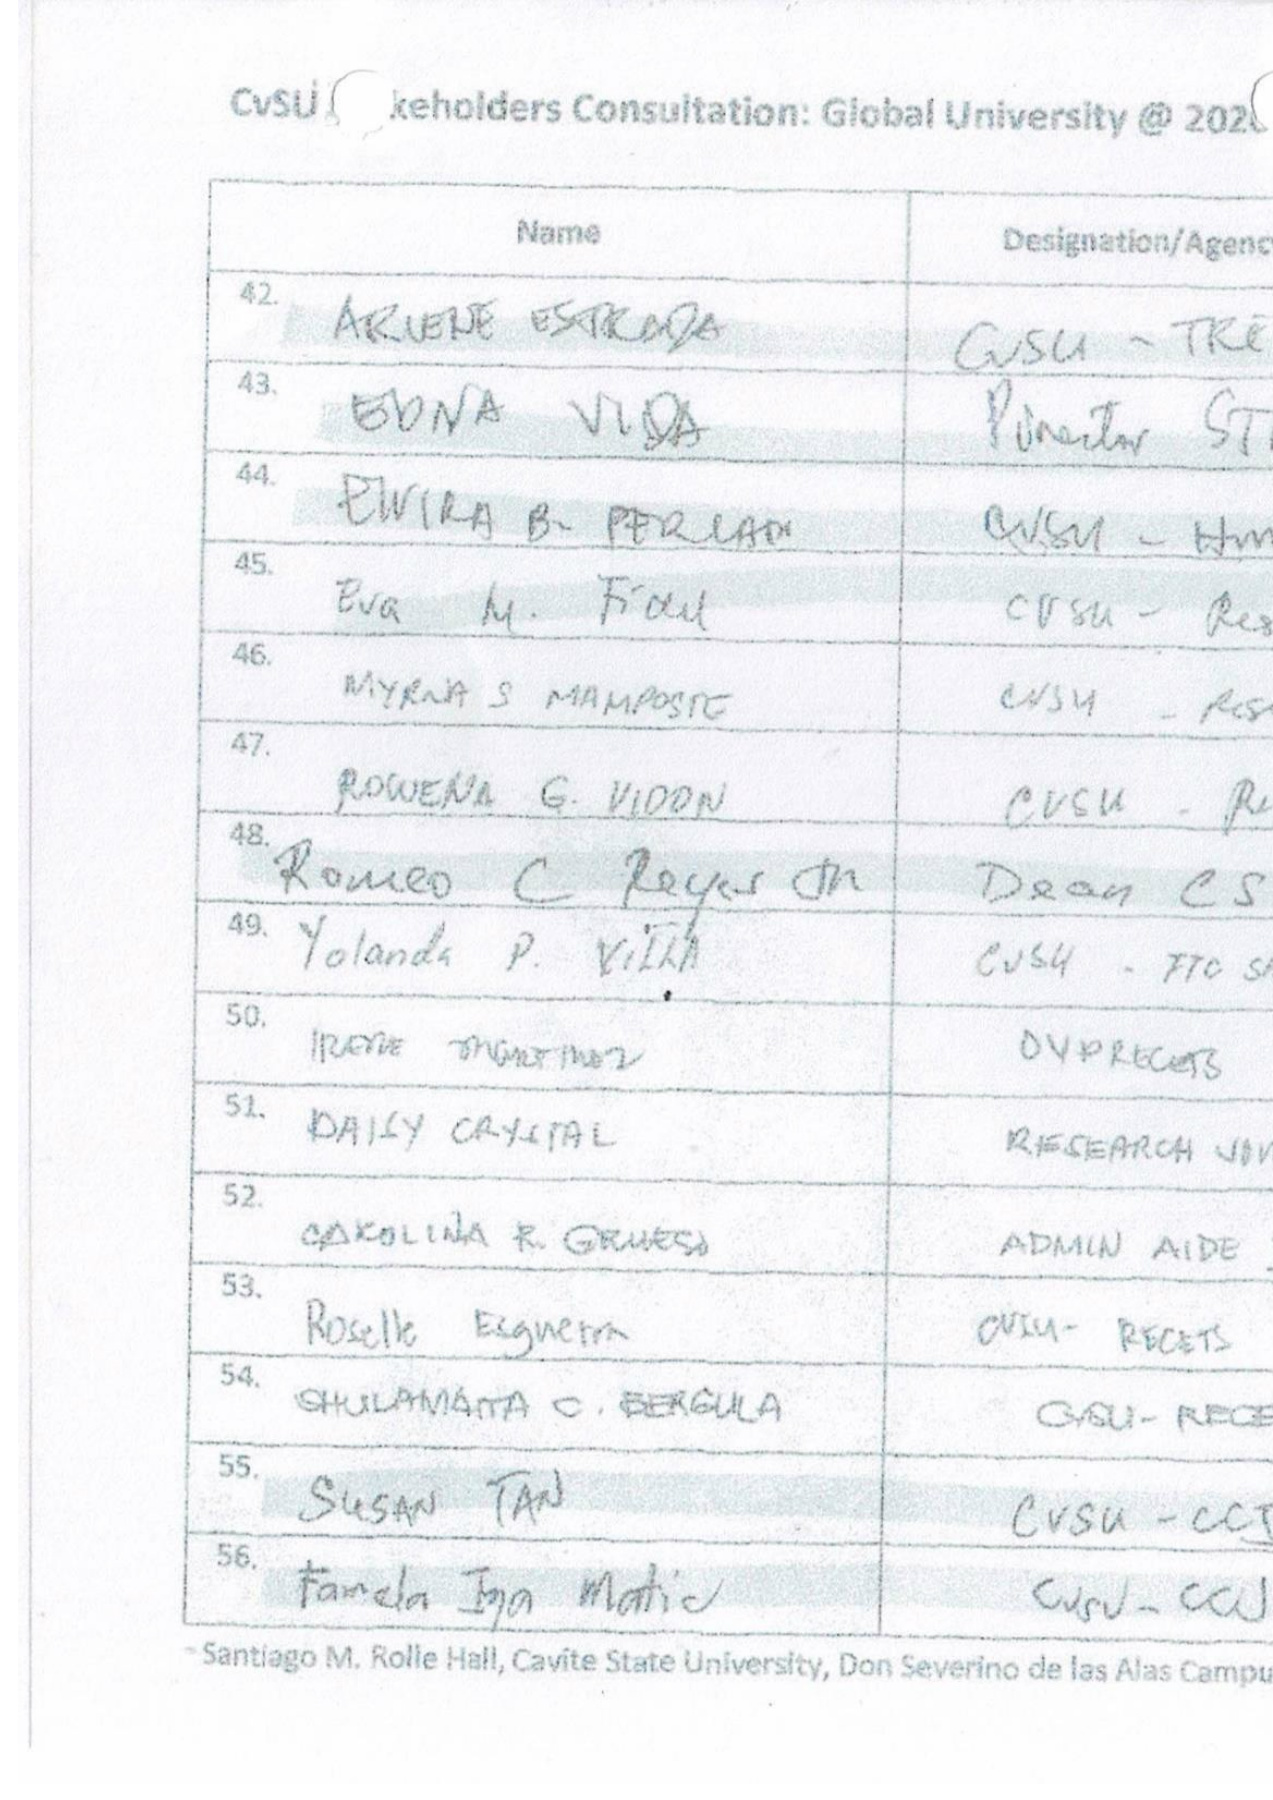 CvSU keholders Consultation: Global University @ 202
Name Designation/Agency
42. ARLENE ESTRADA CvSU - TRE
43. EDNA VIDA Director ST
44. ELVIRA B. CvSU -
45. Eva M. Fidel CVSU - Res
46. MYRNA S MAMPOSTE CVSU - Res
47. ROWENA G. VIDON CVSU - Re
48. Romeo C. Reyes Jr Dean CS
49. Yolanda P. VILLA CVSU -
50. IRENE MARTINEZ OVPRECETS
51. DAISY CRYSTAL RESEARCH
52. CAROLINA R. GRUESO ADMIN AIDE
53. Roselle Esguerra CVSU- RECETS
54. SHULAMAITA C. BERGULA CvSU- RECE
55. SUSAN TAN CVSU - CCJ
56. Famela Iza Matic CvSU - CCJ
Santiago M. Rolle Hall, Cavite State University, Don Severino de las Alas Campu